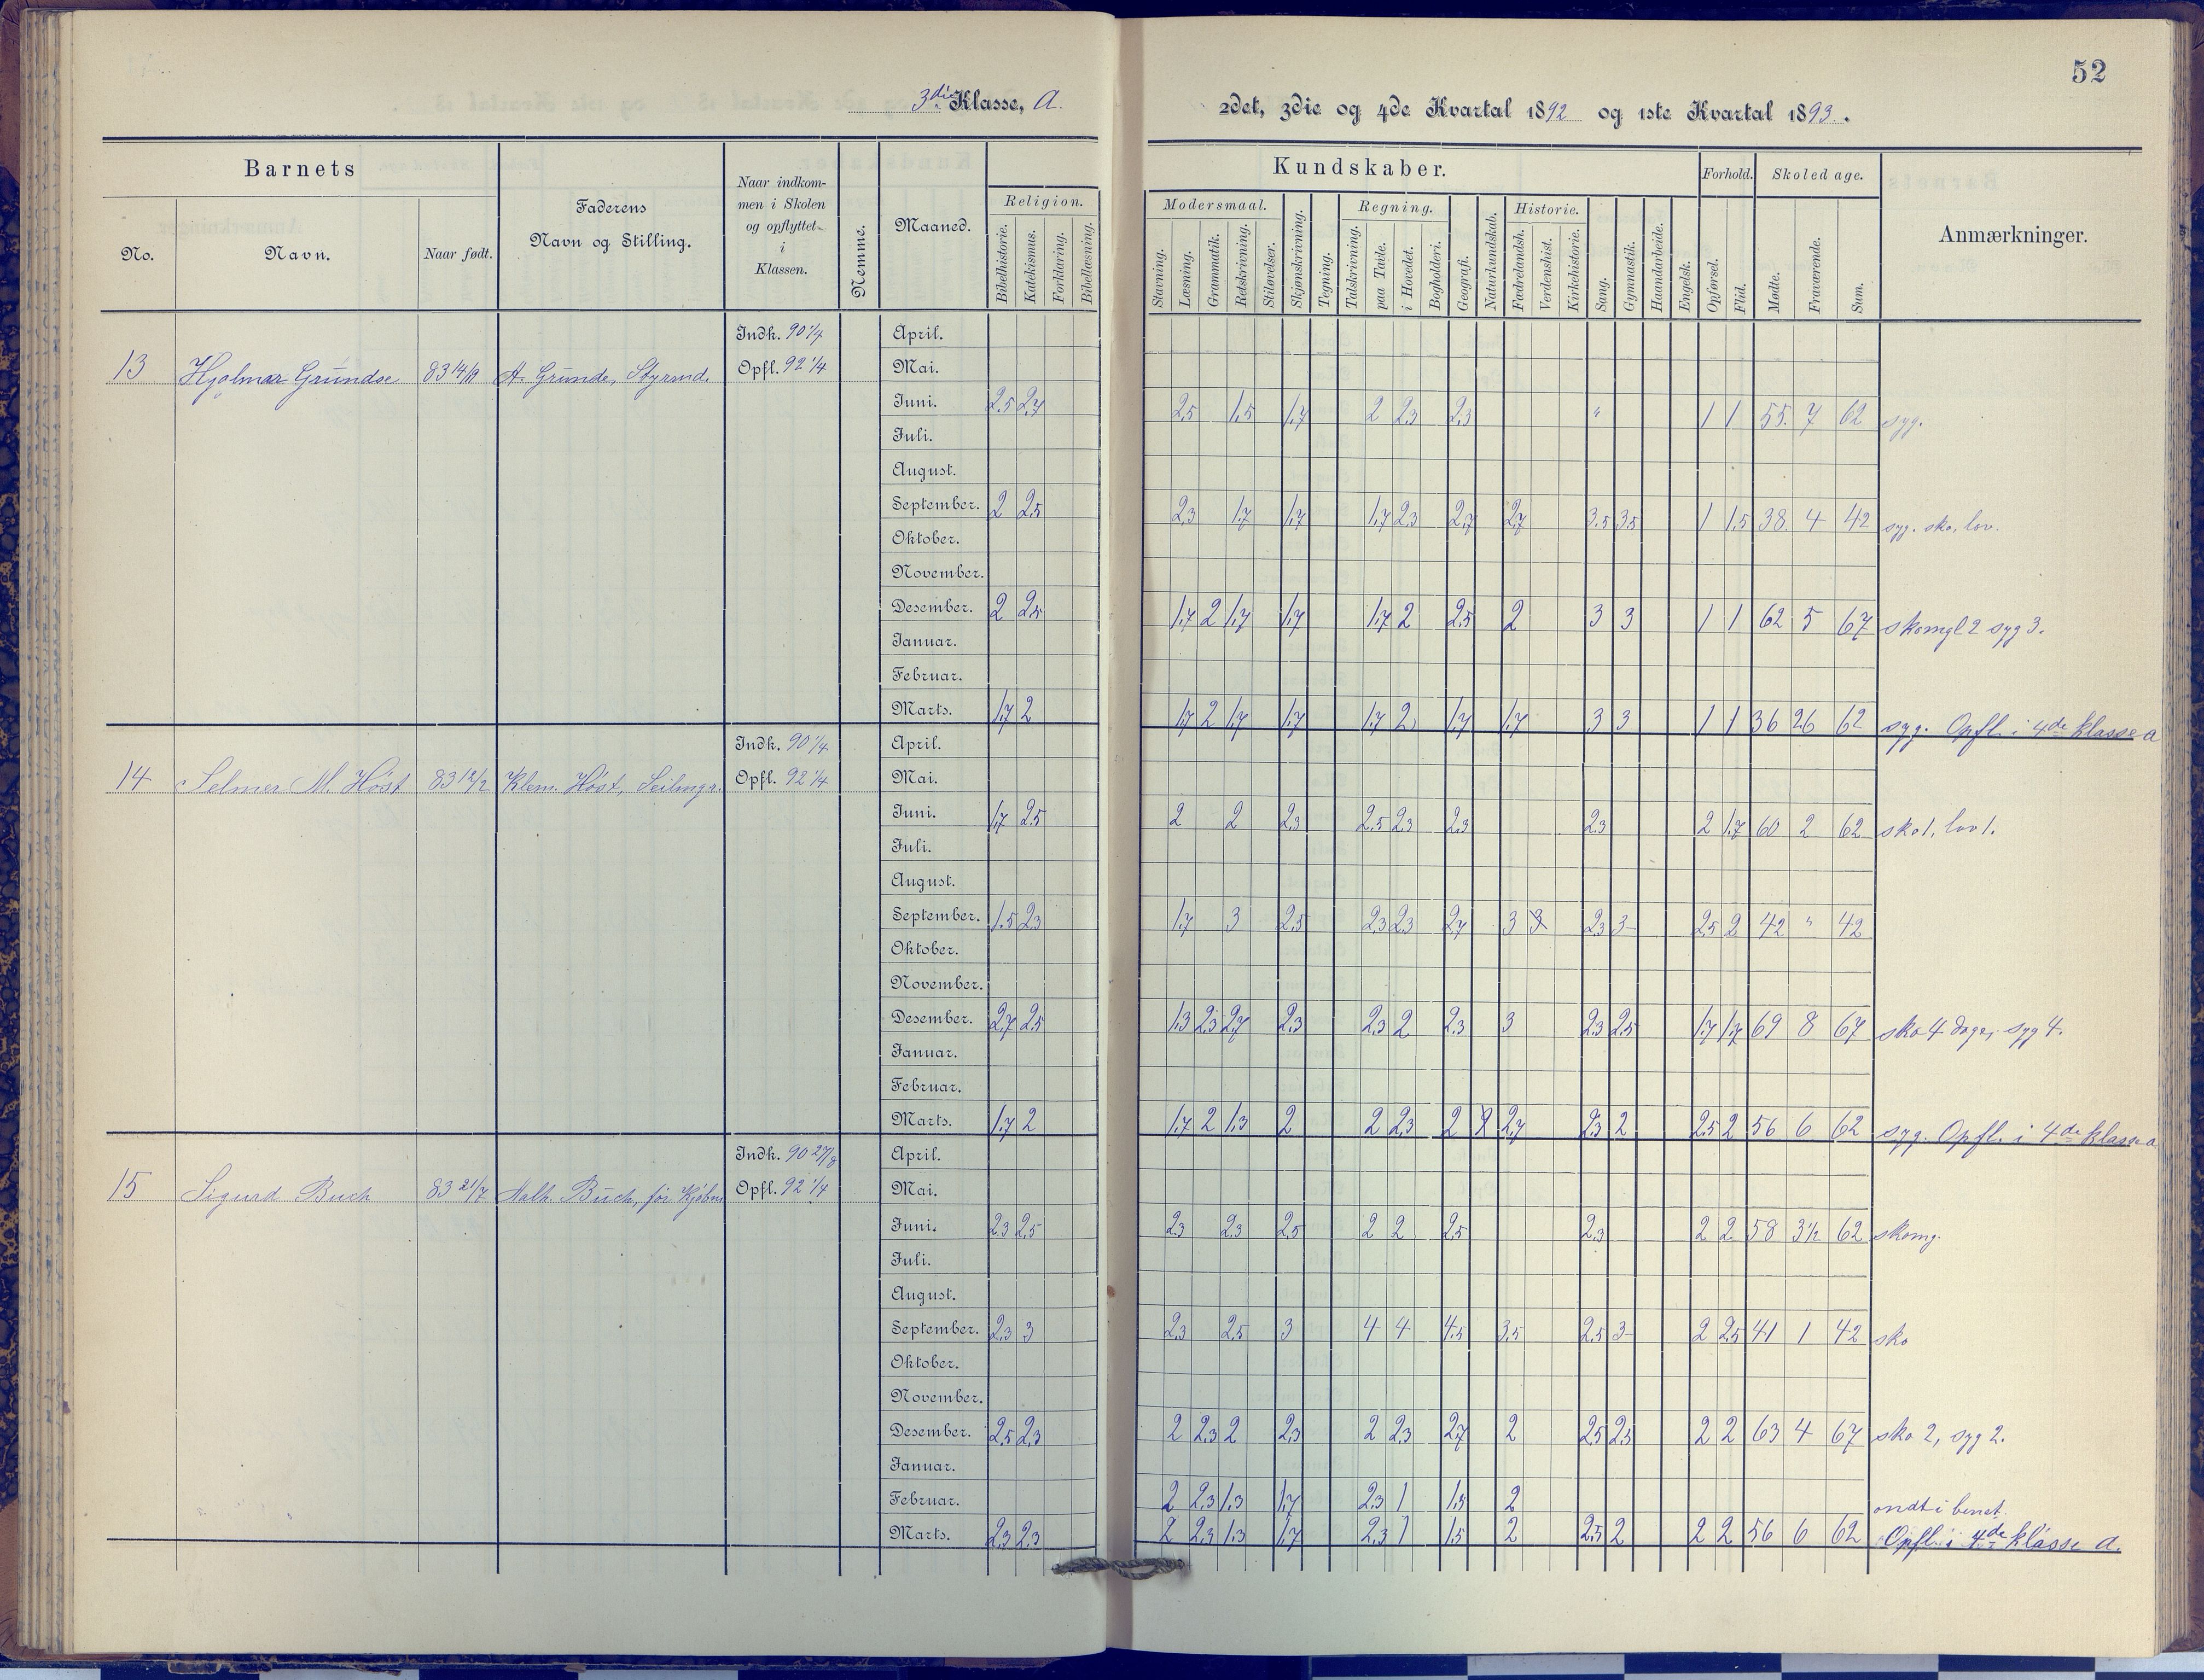 52
3die Klasse, A.
2det, 3die og 4de Kvartal 1892 og 1ste Kvartal 1893.
Barnets
Faderens Navn og Stilling.
Naar indkommen i Skolen og opflyttet i Klassen.
Nemme.
Maaned.
Kundskaber.
Forhold.
Skoledage.
Anmærkninger.
No.
Navn.
Naar født.
Religion.
Bibelhistorie.
Katekismus.
Forklaring.
Bibellæsning.
Modersmaal.
Stavning.
Læsning.
Grammatik.
Retskrivning.
Stiløvelser.
Skjønskrivning.
Tegning.
Regning.
Talskrivning.
paa Tavle.
i Hovedet.
Bogholderi.
Geografi.
Naturkundskab.
Historie.
Fædrelandsh.
Verdenshist.
Kirkehistorie.
Sang.
Gymnastik.
Haandarbeide.
Engelsk.
Opførsel.
Flid.
Mødte.
Fraværende.
Sum.
Indk. 90 1/4 April.
13 Hjalmar Grundse A. Grunde, Styrmd. Opfl. 92 1/4 Mai.
Juni. 2.5 2.7 2.5 1.5 1.7 2 2.3 2.3 " 1 1 55 7 62 syg.
Juli.
August.
September. 2 2.5 2.3 1.7 1.7 1.7 2.3 2.7 2.7 3.5 3.5 1 1.5 38 4 42 syg. sko, lov.
Oktober.
November.
Desember. 2 2.5 1.7 2 1.7 1.7 1.7 2 2.5 2 3 3 1 1 62 5 67 skomgl 2 syg 3.
Januar.
Februar.
Marts. 1.7 2 1.7 2 1.7 1.7 1.7 2 1.7 1.7 3 3 1 1 36 26 62 syg. Opfl. i 4de klasse a
Indk. 90 1/4 April.
14 Selmer M. Høst 83 12/2 Klem. Høst, Opfl. 92 1/4 Mai.
Juni. 1.7 2.5 2 2 2.3 2.5 2.3 2.3 2.3 2 1.7 60 2 62 sko 1, lov 1.
Juli.
August.
September. 1.5 2.3 1.7 3 2.5 2.3 2.3 2.7 3 3 2.3 3 2.5 2 42 " 42
Oktober.
November.
Desember. 2.7 2.5 1.3 2.3 2.7 2.3 2.3 2 2.3 3 2.3 2.5 1.7 1.7 69 8 67 sko 4 dage, syg 4.
Januar.
Februar.
Marts. 1.7 2 1.7 2 1.3 2 2 2.3 2 2.7 2.3 2 2.5 2 56 6 62 syg. Opfl. i 4de klasse a
Indk. 90 27/8 April.
15 Sigurd Buch 83 21/7 Buch, før Kjøbm Opfl. 92 1/4 Mai.
Juni. 2.3 2.5 2.3 2.3 2.5 2 2 2.5 2.3 2 2 58 3 1/2 62 skomg.
Juli.
August.
September. 2.3 3 2.3 2.5 3 4 4 4.5 3.5 2.5 3 2 2.5 41 1 42 sko
Oktober.
November.
Desember. 2.5 2.3 2 2.3 2 2.3 2 2.3 2.7 2 2.5 2.5 2 2 63 4 67 sko 2, syg 2.
Januar.
Februar. 2 2.3 1.3 1.7 2.3 1 1.5 2 ondt i benet.
Marts. 2.3 2.3 2 2.3 1.3 1.7 2.3 1 1.5 2 2.5 2 2 2 56 6 62 Opfl. i 4de klasse a.